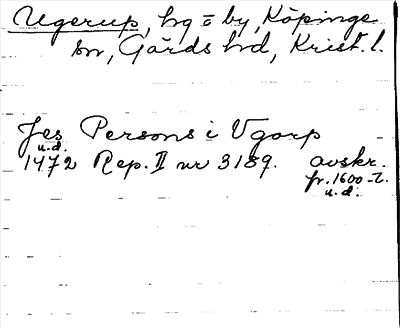 Ugerup, hg o by, Köpinge
sn, Gärds hd, Krist. l.
Jes Persons i Vgorp
u.d.
1472 Rep. II nr 3189. avskr.
fr. 1600-t.
u.d.